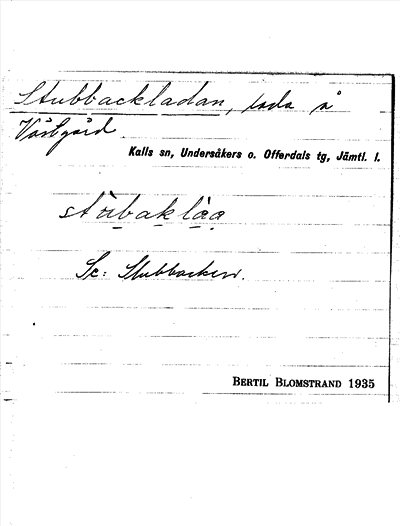 Stubbackladan, lada å
Västgård
Kalls sn, Undersåkers o. Offerdals tg, Jämtl. l.
Se: Stubbacken.
BERTIL BLOMSTRAND 1935